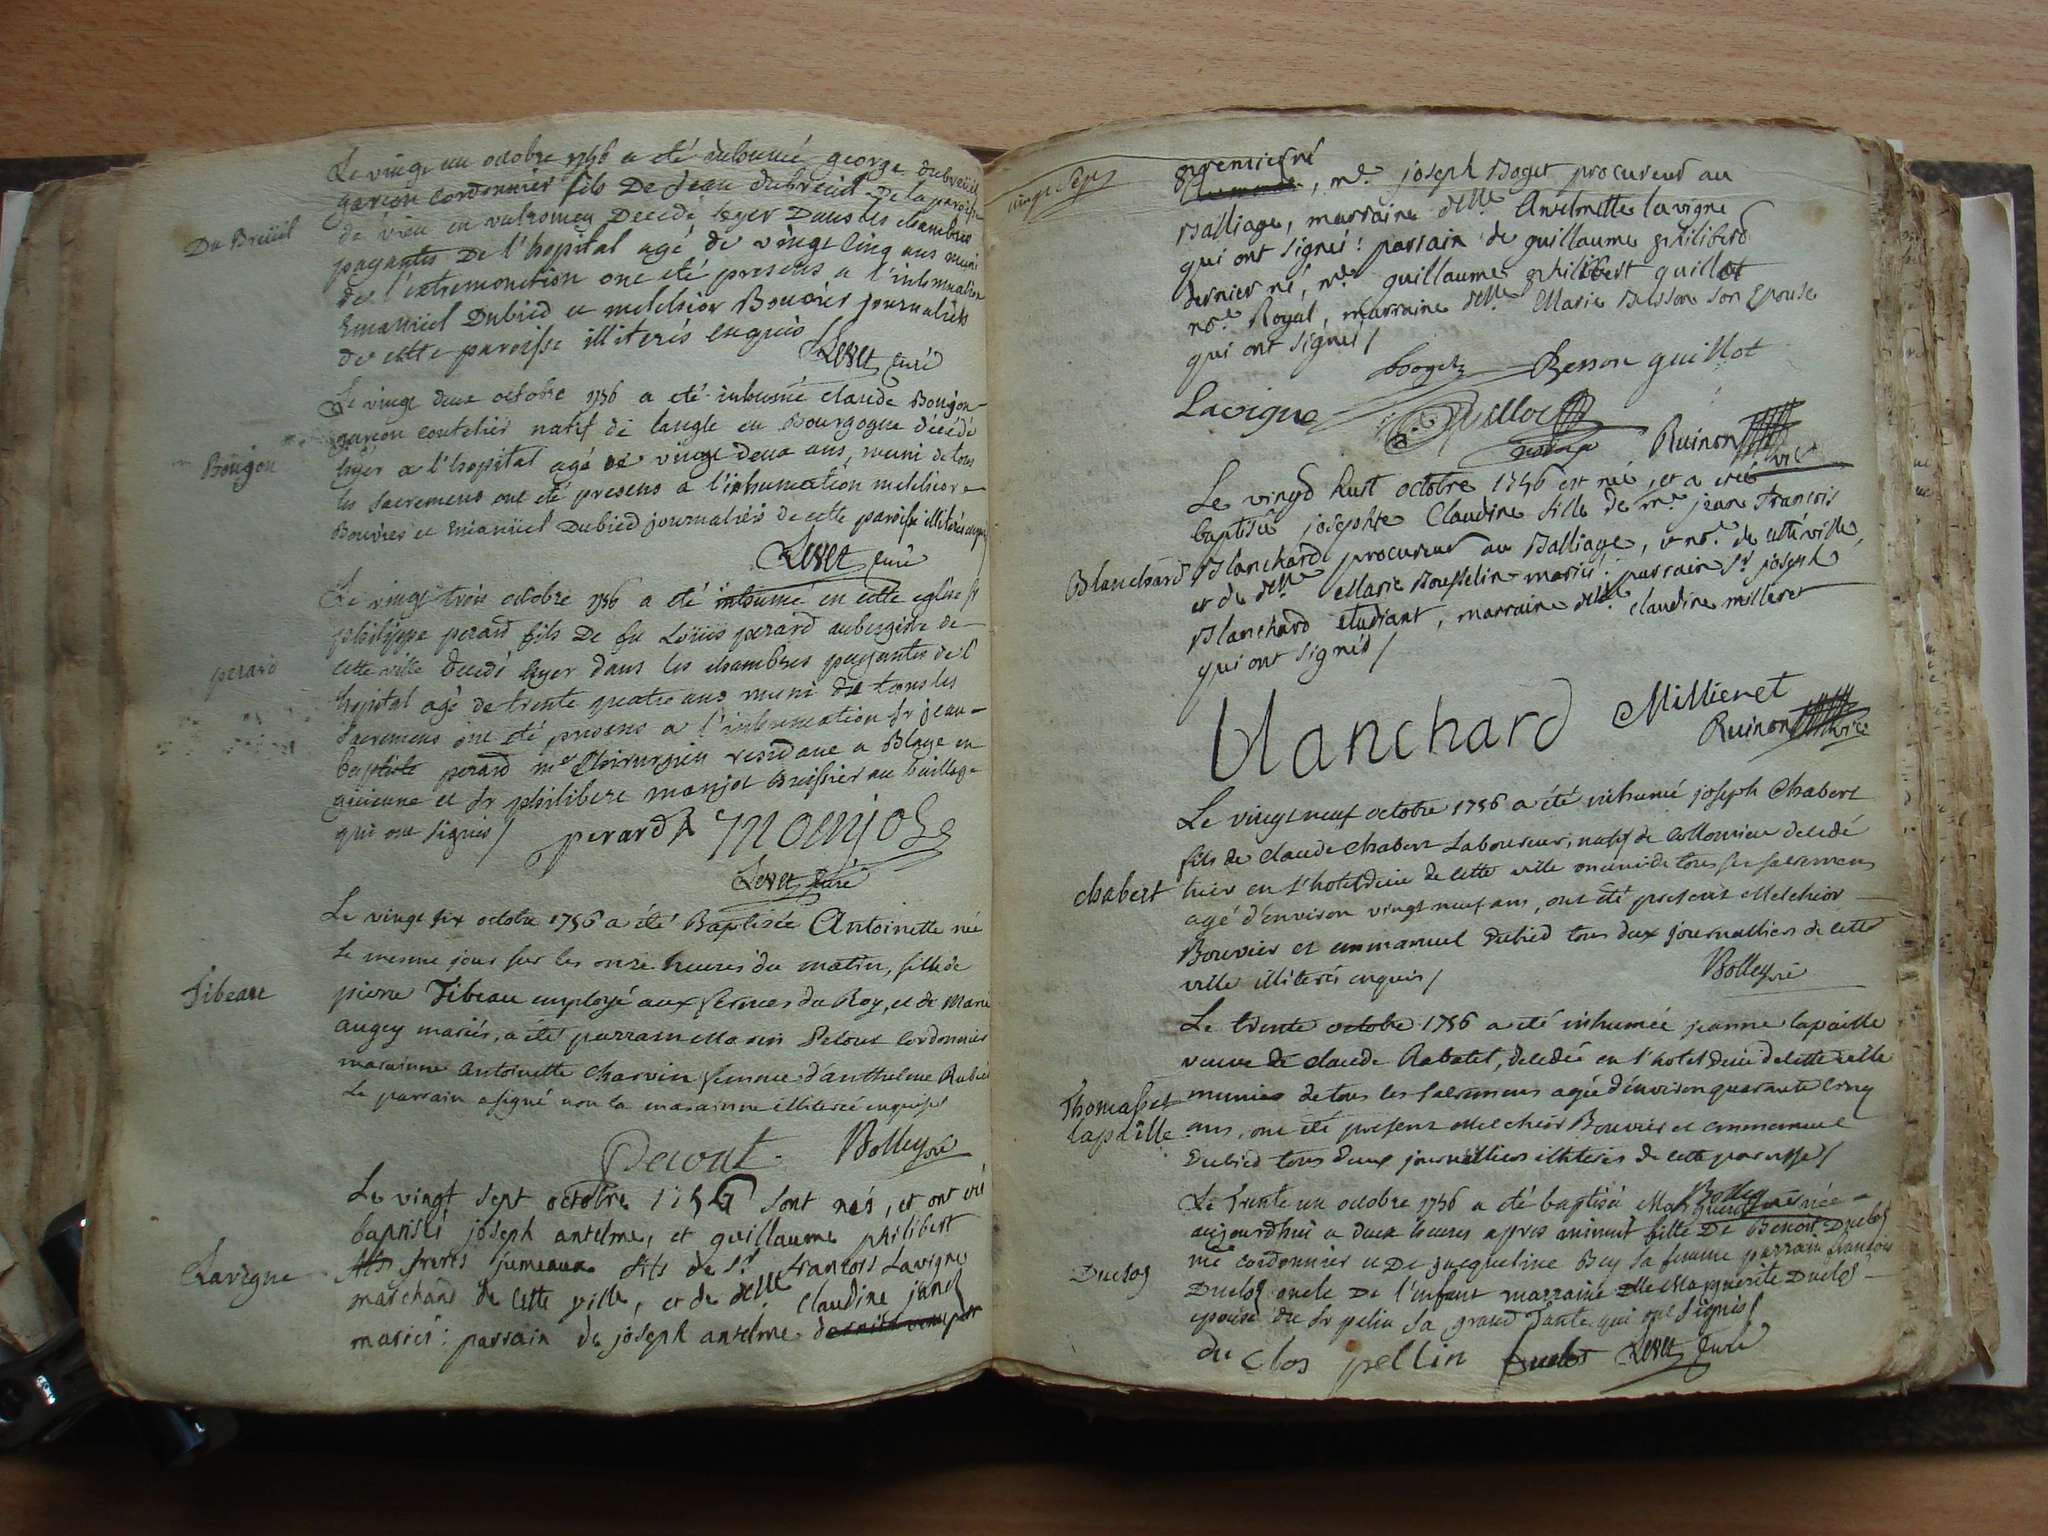 Du Breüil
Le vingt un octobre 1756 a été inhumé george dubreüil
garcon cordonnier fils De Jean dubreüil De la paroisse
de vieu en valromey Decedé hyer Dans les chambres
payantes De l'hopital agé de vingt cinq ans muni
de l'extremonction ont été presens a l'inhumation
Emanüel Dubied et melchior Bouvier journaliers
de cette paroisse illiterés enquis
Levet curé
Bougon
Le vingt deux octobre 1756 a été inhumé claude Bougon
garcon coutelier natif de langle en Bourgogne décédé
hyer a l'hopital agé de vingt deux ans, muni de tous
les sacremens ont été presens a l'inhumation melchior
Bouvier et Emanüel Dubied journaliers de cette paroisse illiterés enquis
Levet curé
perard
Le vingt trois octobre 1756 a été inhumé en cette eglise sr
philippe perard fils De fu Loüis perard aubergiste de
cette ville decedé hyer dans les chambres payantes de l'
hopital agé de trente quatre ans muni de tous les
sacremens ont été presens a l'inhumation sr jean
baptiste perard me Chirurgien residant a Blaye en
guienne et sr philibert monjot huissier au bailliage
qui ont signés /
perard monjot
Levet curé
Tibeau
Le vingt six octobre 1756 a été Baptisée Antoinette née
le mesme jour sur les onze heures du matin, fille de
pierre Tibeau employé aux fermes du Roy, et de Marie
augey mariés, a été parrain Marin Peloux cordonnier
marainne antoinette charvin femme d'anthelme Rubod
Le parrain a signé non la marainne illiterée enquise
Bolley vic
Lavigne
Le vingt sept octobre 1756 sont nés, et ont été
baptisés joseph anselme, et guillaume philibert
freres jumeaux fils de sr francois Lavigne
marchand de cette ville, et de delle Claudine janet
mariés: parrain de joseph anselme
vingt sept
premier né
, me. joseph Boget procureur au
Balliage, marraine delle Anselmette lavigne
qui ont signés: parrain de guillaume philibert
dernier né, me guillaume philibert guillot
nore Royal, marraine delle Marie Besson son Epouse
qui ont signés /
Boget Besson guillot
Lavigne Guillot
Ruinon
vic
Blanchard
Le vingt huit octobre 1756 est née, et a eté
baptisée josephte Claudine fille de me jean francois
Blanchard procureur au Balliage, et nore. de cette ville,
et de delle Marie Rousselin mariés: parrain sr joseph
Blanchard etudiant, marraine delle claudine milleret
qui ont signés /
blanchard Millieret
Ruinon vic
chabert
Le vingt neuf octobre 1756 a été inhumé joseph Chabert
fils de claude chabert Laboureur, natif de Collomieu decedé
hier en l'hotel dieu de cette ville muni de tous ses sacremens
agé d'environ vingt neuf ans, ont été present Melchior
Bouvier et emmanuel Dubied tous deux journalliers de cette
ville illiterés enquis /
Bolley vic
Thomasset
lapaille
Le trente octobre 1756 a été inhumée jeanne lapaille
veuve de claude Rabatet, decedée en l'hotel dieu de cette ville
munie de tous les sacremens agée d'environ quarante cinq
ans, ont été present Melchior Bouvier et emmanuel
Dubied tous deux journalliers illiterés de cette paroisse /
Bolley
Duclos
Le trente un octobre 1756 a été baptisé Marguerite née
aujourdhui a deux heures apres minuit fille De Benoit Duclos
me cordonnier et De jacqueline Bey sa femme parrain francois
Duclos oncle De l'enfant marraine Dlle Marguerite Duclos
epouse du sr pelin sa grand Tante qui ont signés /
du clos pellin duclos Levet curé